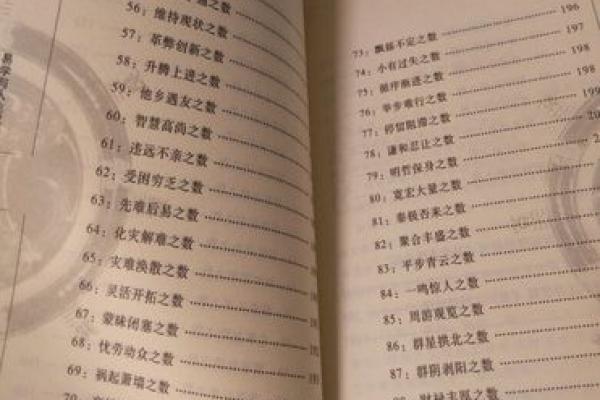 易学与人
通之数
56：维持现状之数
57：革弊创新之数
58：升腾上进之数
59：他乡遇友之数
60：智慧高尚之数
61：违远不亲之数
62：受困穷乏之数
63：先难后易之数
64：化灾解难之数
65：灾难涣散之数
66：灵活开拓之数
67：蒙昧闭塞之数
68：忧劳动众之数
69：祸起萧墙之数
70：
196
73：飘摇不定之数 196
74：小有过失之数 198
75：循序渐进之数 198
76：举步难行之数 199
77：停留阻滞之数
78：谦和忍让之数
79：明哲保身之数
80：宽宏大量之数
81：泰极否来之数
82：聚合丰盛之数
83：平步青云之数
84：一鸣惊人之数
85：周游观览之数
86：群星拱北之数
87：群阴剥阳之数